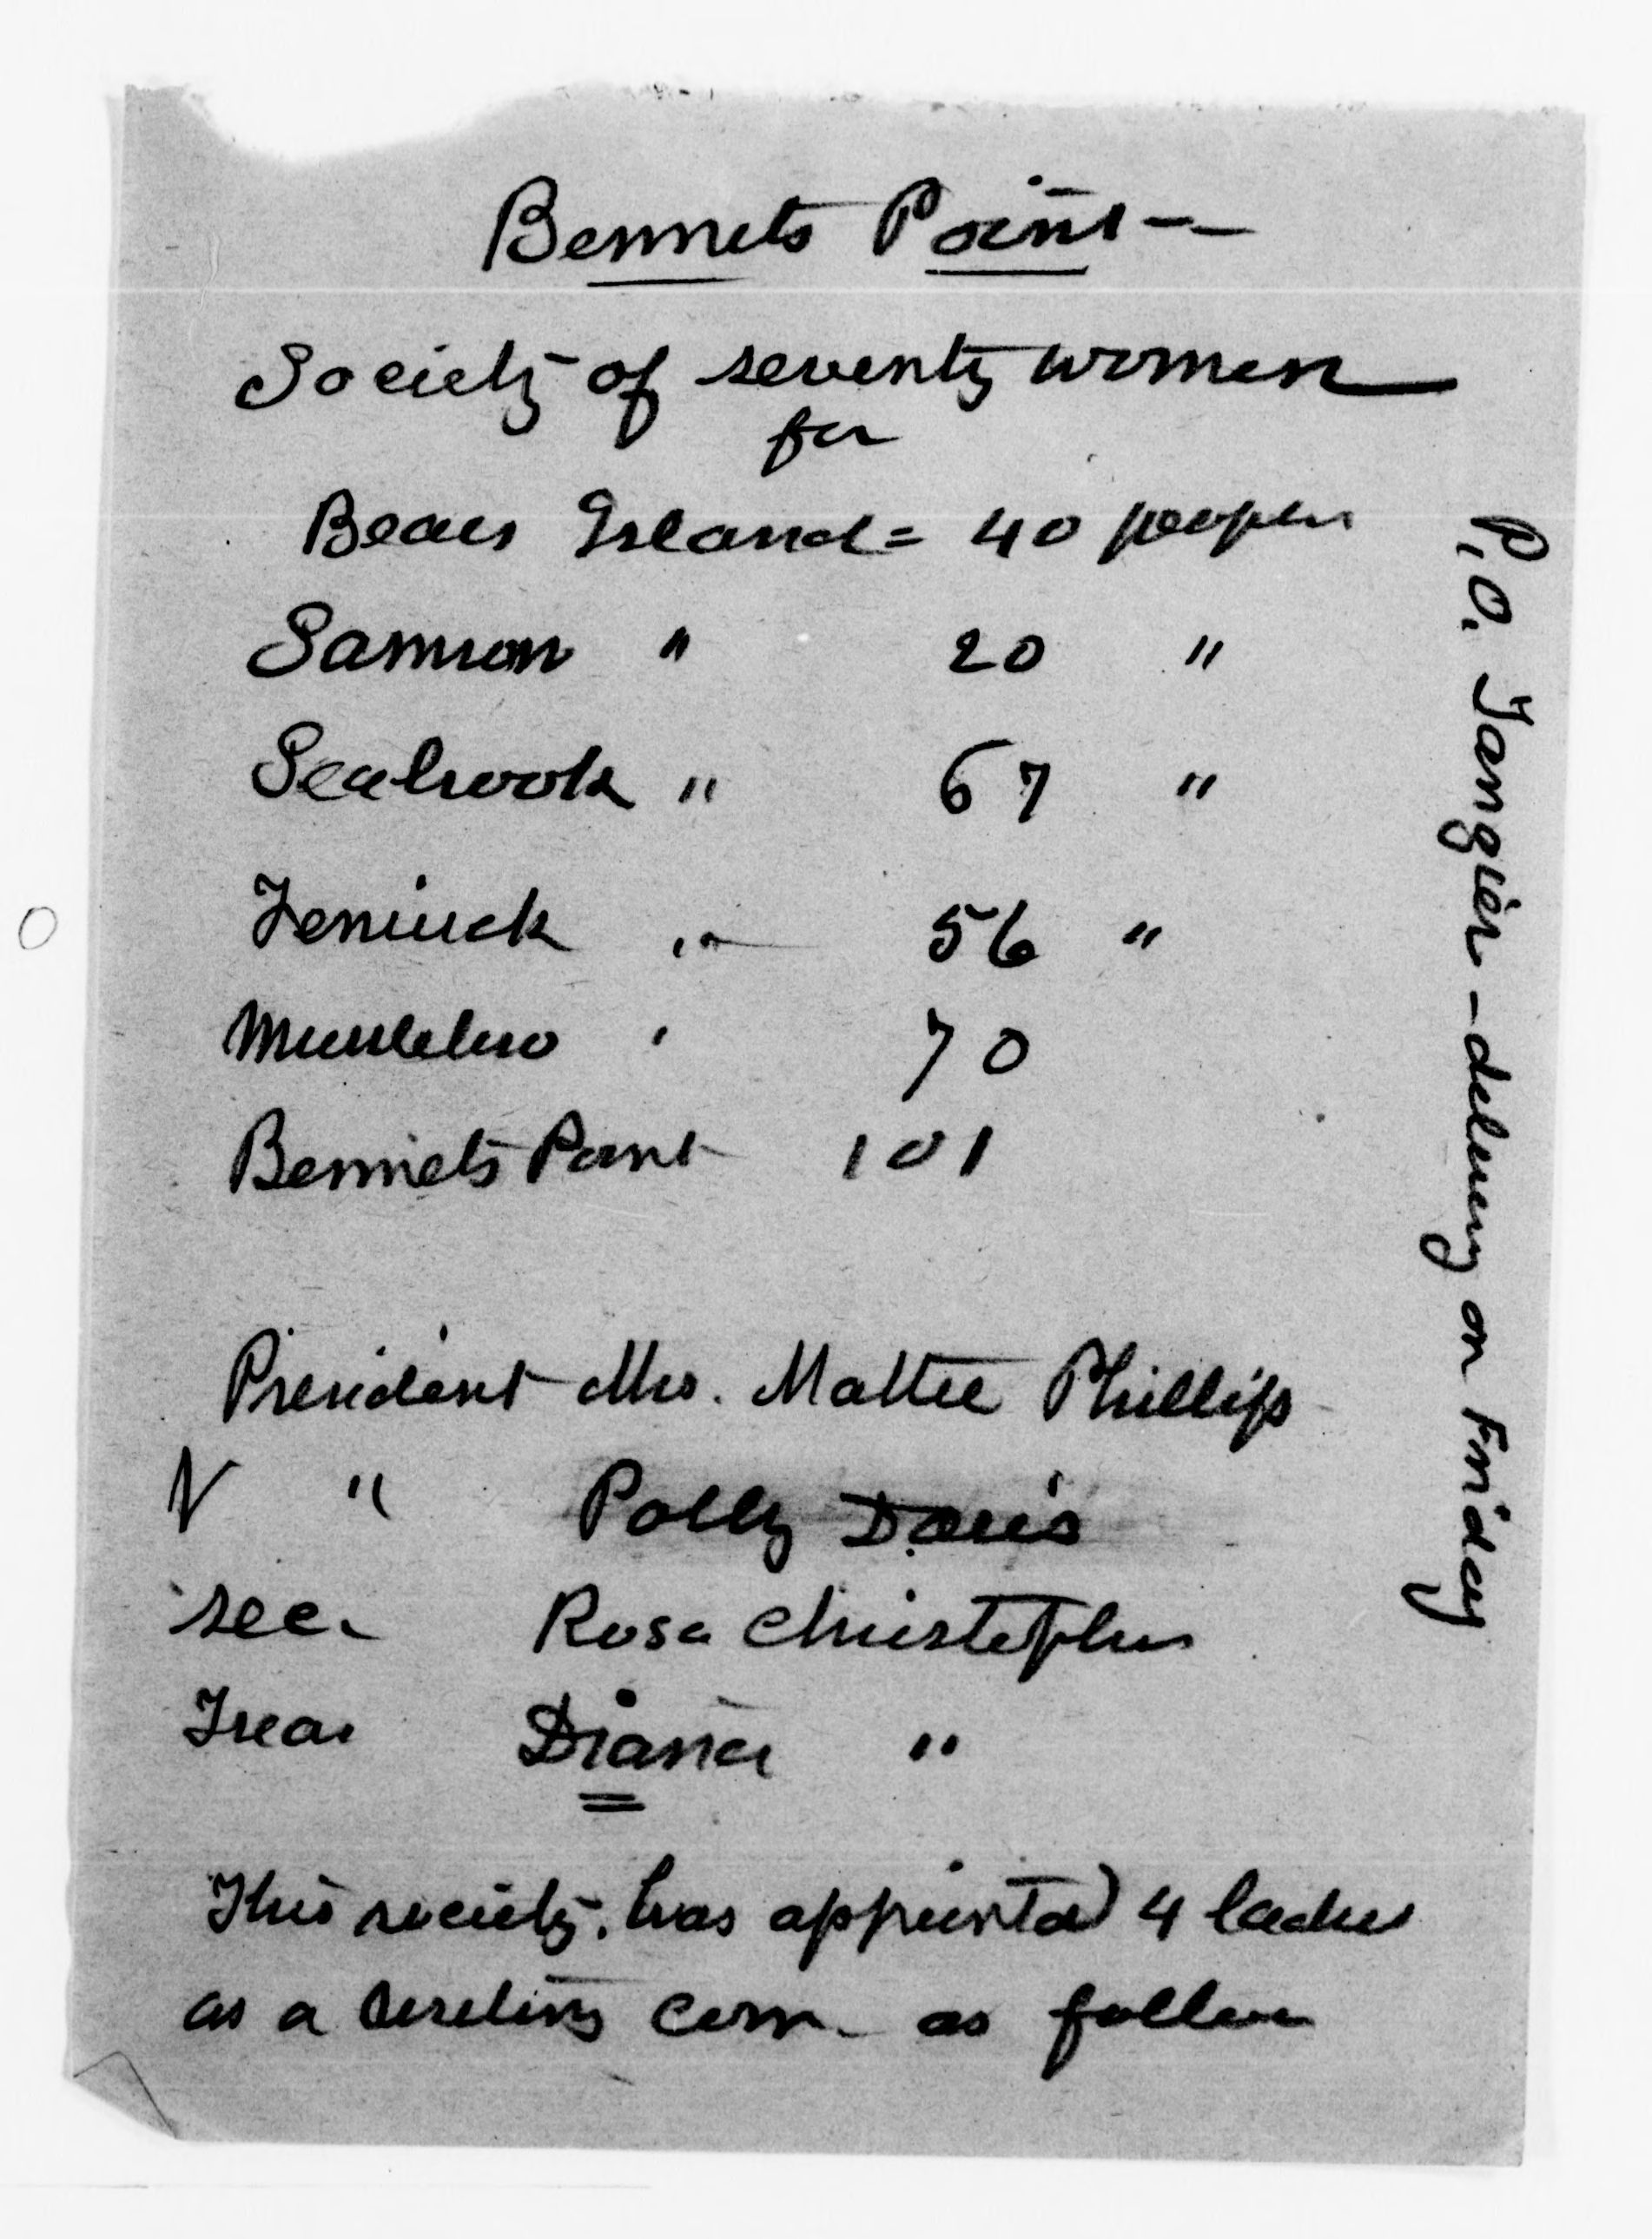 Bennets Point --
Society of seventy women
for
Bears Island = 40 people
Samson " 20 "
Seabrook " 67 "
Fenwick " 56 "
70
Bennets Point 101
President Mrs. Mattie Phillips
V " Polly Davis
sec. Rosa Christopher
Treas Diana "
This society has appointed 4 ladies
as a com - as follow
P.O. Jangier - delivery on Friday